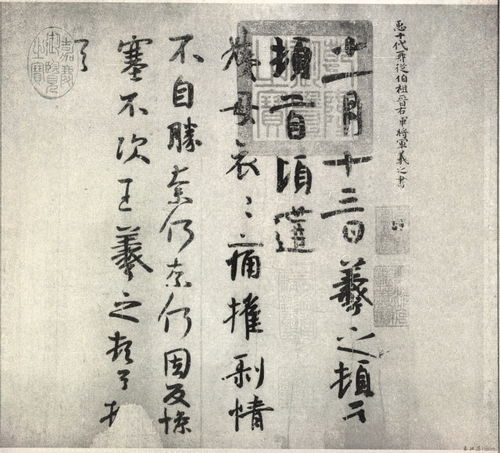 臣十代再從伯祖晉右軍將軍羲之書
十一月十三日羲之頓首
頓首頃遘
姨母哀〻痛摧剝情
不自勝奈何奈何因反慘
塞不次王羲之頓首頓
首
嘉慶御覽之寶